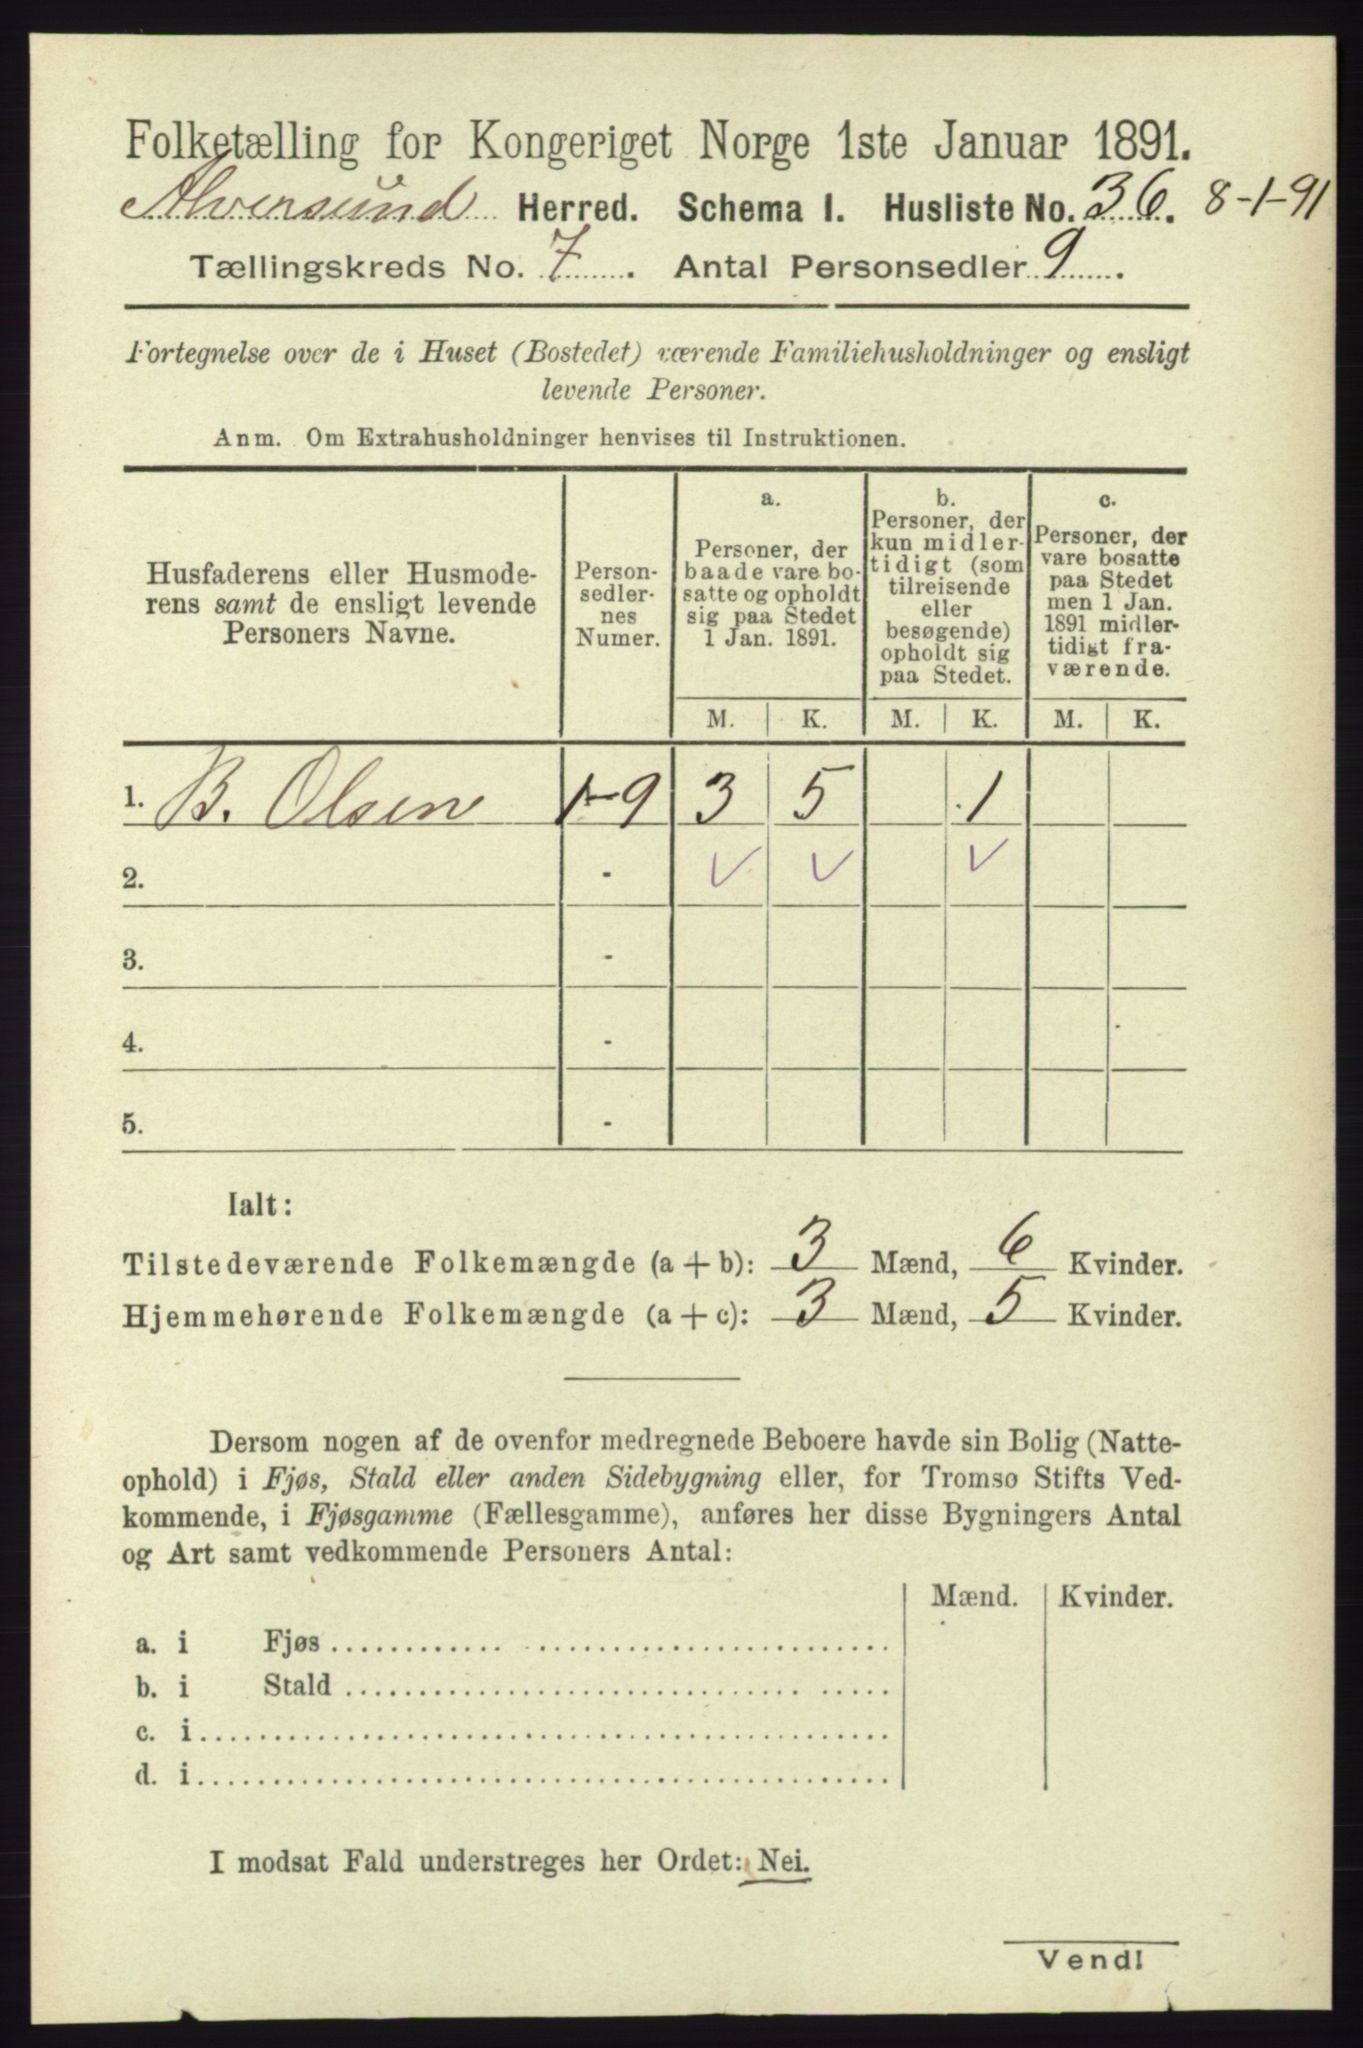 Folketælling for Kongeriget Norge 1ste Januar 1891.
Alversund Herred. Schema I. Husliste No. 36. 8-1-91
Tællingskreds No. 7. Antal Personsedler 9.
Fortegnelse over de i Huset (Bostedet) værende Familiehusholdninger og ensligt
levende Personer.
Anm. Om Extrahusholdninger henvises til Instruktionen.
Husfaderens eller Husmode-
rens samt de ensligt levende
Personers Navne.
Person-
sedler-
nes
Numer.
a.
Personer, der
baade vare bo-
satte og opholdt
sig paa Stedet
1 Jan. 1891.
b.
Personer, der
kun midler-
tidigt (som
tilreisende
eller
besøgende)
opholdt sig
paa Stedet.
c.
Personer, der
vare bosatte
paa Stedet
men 1 Jan.
1891 midler-
tidigt fra-
værende.
M. K. M. K. M. K.
1. B. Olsen 1-9 3 5 1
2. - ✓ ✓ ✓
3. -
4. -
5. -
Ialt:
Tilstedeværende Folkemængde (a + b): 3 Mænd, 6 Kvinder.
Hjemmehørende Folkemængde (a + c): 3 Mænd, 5 Kvinder.
Dersom nogen af de ovenfor medregnede Beboere havde sin Bolig (Natte-
ophold) i Fjøs, Stald eller anden Sidebygning eller, for Tromsø Stifts Ved-
kommende, i Fjøsgamme (Fællesgamme), anføres her disse Bygningers Antal
og Art samt vedkommende Personers Antal:
Mænd. Kvinder.
a. i Fjøs
b. i Stald
c. i
d. i
I modsat Fald understreges her Ordet: Nei.
Vend!